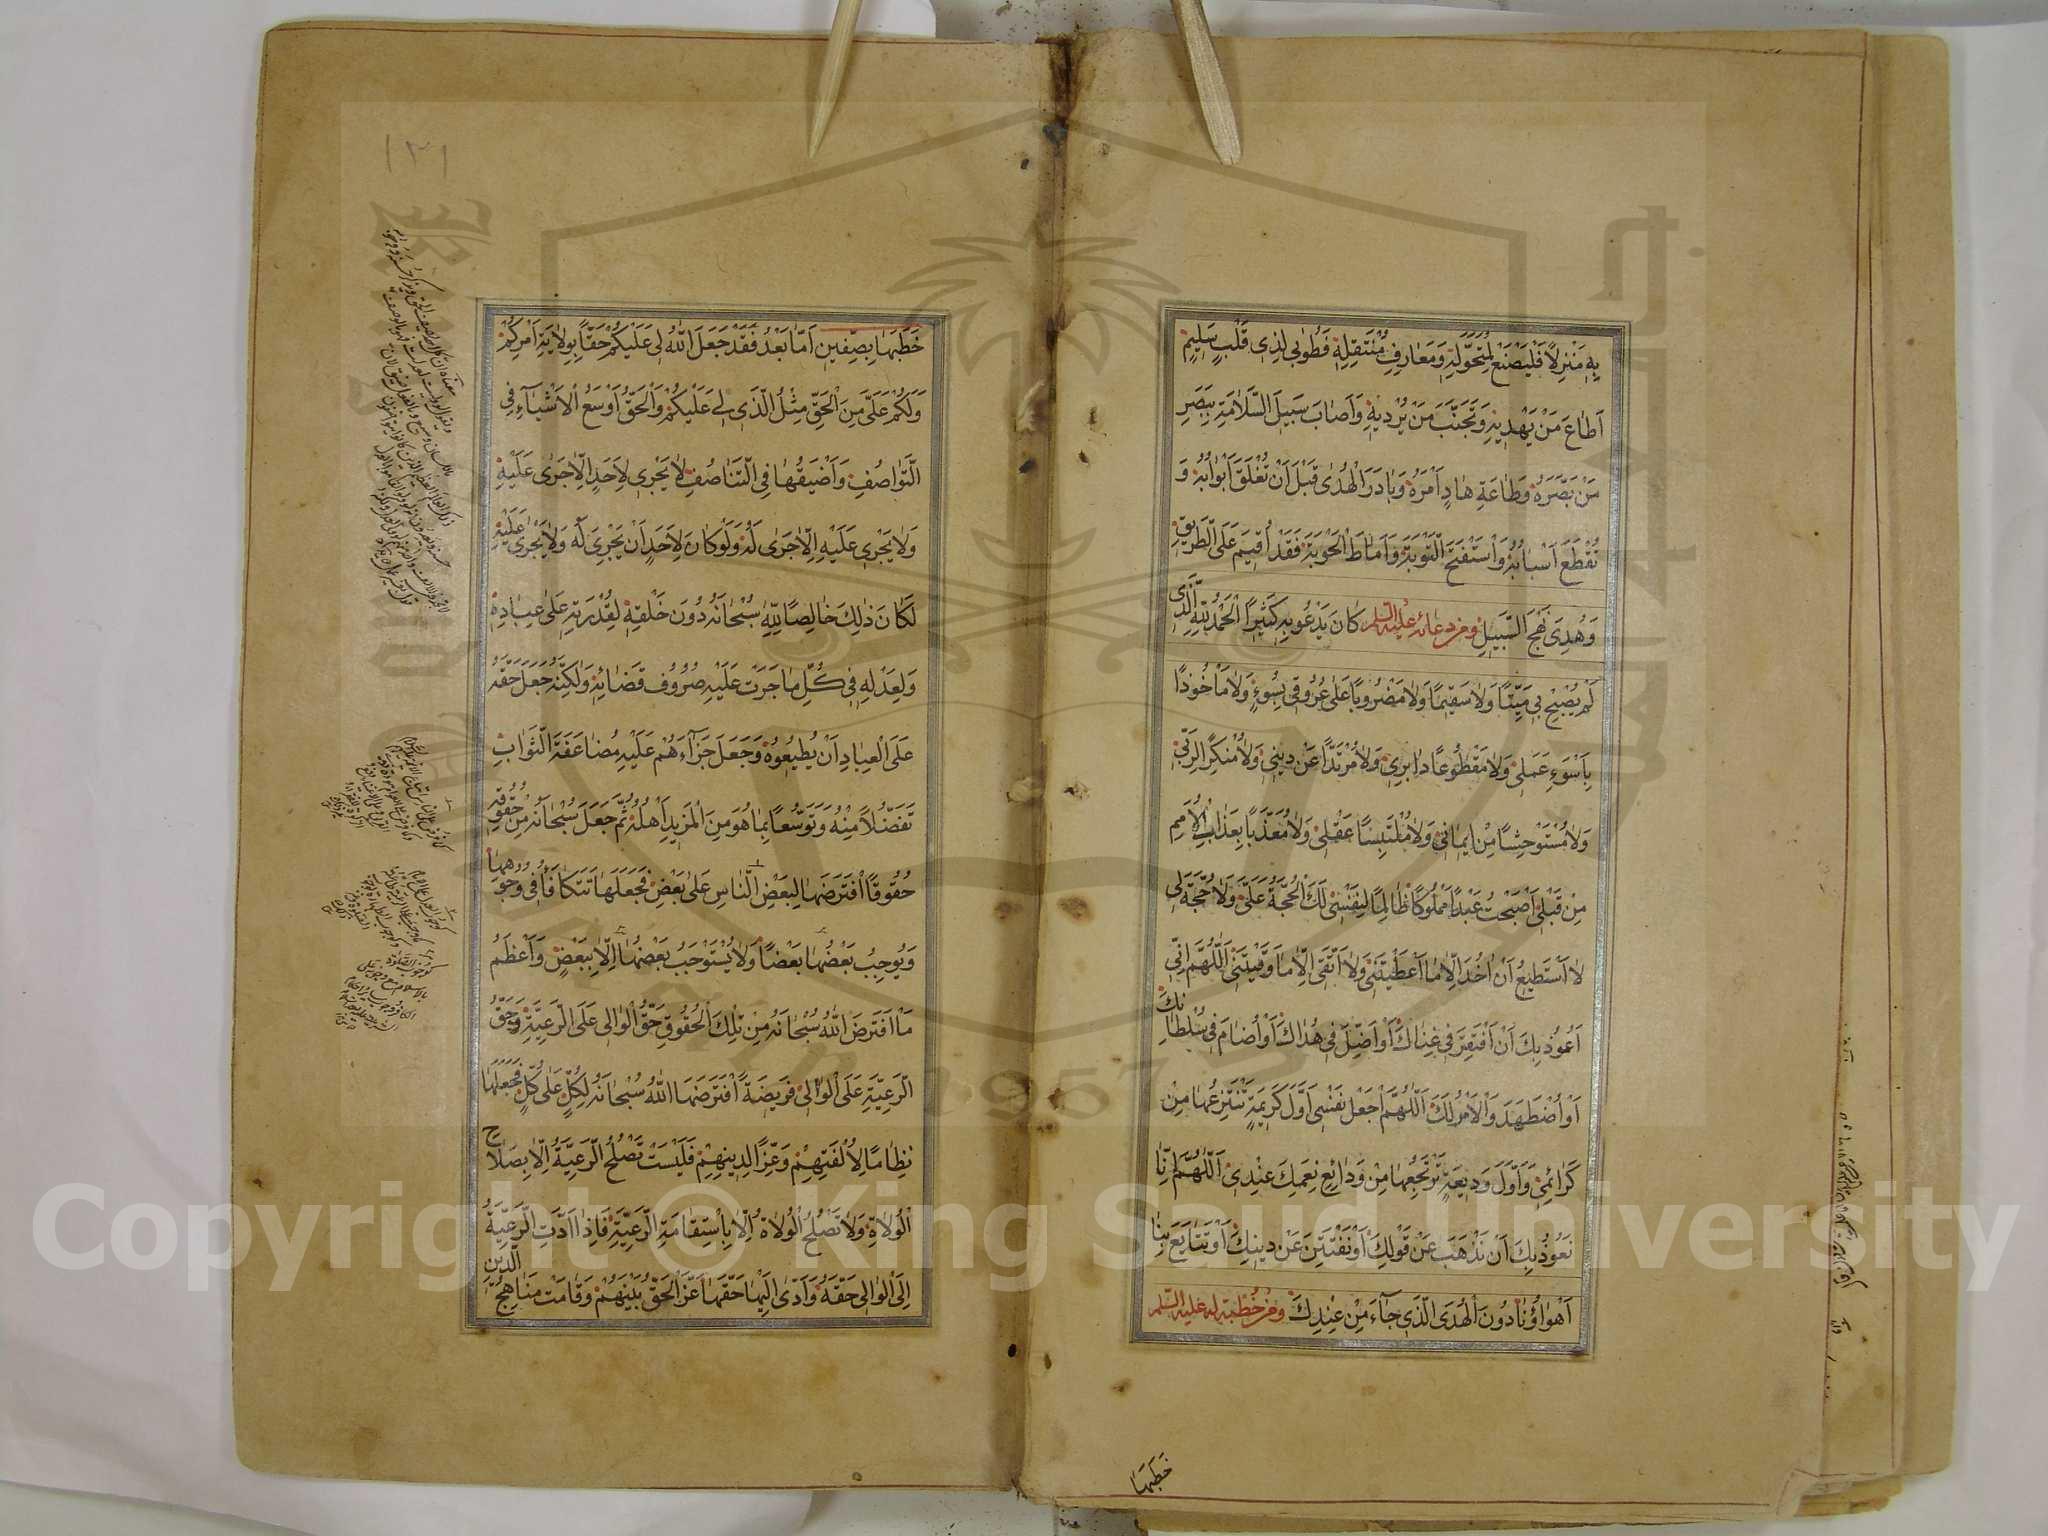 بِهِ مَنْزِلًا فَلْيَصْنَعْ لِمُتَحَوَّلِهِ وَمَعَارِفِ مُنْتَقَلِهِ فَطُوبى لِذِى قَلْبٍ سَلِيمٍ
اَطَاعَ مَنْ يَهْدِيْهِ وَتَجَنَّبَ مَنْ يُرْدِيْهِ وَاَصَابَ سَبِيلَ السَّلَامَةِ بِبَصَرِ
مَنْ بَصَّرَهُ وَطَاعَةِ هَادٍ اَمَرَهُ وَبَادَرَ الْهُدٰى قَبْلَ اَنْ تُغْلَقَ اَبْوَابُهُ وَ
تُقْطَعَ اَسْبَابُهُ وَاسْتَفْتَحَ التَّوْبَةَ وَاَمَاطَ الْحَوْبَةَ فَقَدْ اُقِيمَ عَلَى الطَّرِيْقِ
وَهُدِىَ نَهْجَ السَّبِيلِ ومن دعائه عليه السلم كَانَ يَدْعُو بِهِ كَثِيْرًا اَلْحَمْدُ لِلّٰهِ الَّذِى
لَمْ يُصْبِحْ بِى مَيِّتًا وَلَا سَقِيْمًا وَلَا مَضْرُوبًا عَلٰى عُرُوقِى بِسُوءٍ وَلَا مَأْخُوذًا
بِاَسْوَءِ عَمَلِىْ وَلَا مَقْطُوعًا دَابِرِىْ وَلَا مُرْتَدًّا عَنْ دِيْنِىْ وَلَا مُنْكِرًا لِرَبِّىْ
وَلَا مُسْتَوْحِشًا مِنْ اِيْمَانِىْ وَلَا مُلْتَبِسًا عَقْلِىْ وَلَا مُعَذَّبًا بِعَذَابِ الْاُمَمِ
مِنْ قَبْلِىْ اَصْبَحْتُ عَبْدًا مَمْلُوكًا ظَالِمًا لِنَفْسِىْ لَكَ الْحُجَّةُ عَلَىَّ وَلَا حُجَّةَ لِى
لَا اَسْتَطِيْعُ اَنْ اٰخُذَ اِلَّا مَا اَعْطَيْتَنِىْ وَلَا اَتَّقِىَ اِلَّا مَا وَقَيْتَنِىْ اَللّٰهُمَّ اِنِّى
اَعُوذُ بِكَ اَنْ اَفْتَقِرَ فِى غِنَاكَ اَوْ اَضِلَّ فِى هُدَاكَ اَوْ اُضَامَ فِى سُلْطَانِكَ
اَوْ اُضْطَهَدَ وَالْاَمْرُ لَكَ اَللّٰهُمَّ اجْعَلْ نَفْسِى اَوَّلَ كَرِيْمَةٍ تَنْتَزِعُهَا مِنْ
كَرَائِمِىْ وَاَوَّلَ وَدِيْعَةٍ تَرْتَجِعُهَا مِنْ وَدَائِعِ نِعَمِكَ عِنْدِىْ اَللّٰهُمَّ اِنَّا
نَعُوذُ بِكَ اَنْ نَذْهَبَ عَنْ قَوْلِكَ اَوْ نَفْتَتِنَ عَنْ دِيْنِكَ اَوْ تَتَايَعَ بِنَا
اَهْوَاؤُنَا دُونَ الْهُدَى الَّذِى جَآءَ مِنْ عِنْدِكَ ومن خطبة له عليه السلم
خَطَبَهَا
١٣١
خَطَبَهَا بِصِفِّيْنَ اَمَّا بَعْدُ فَقَدْ جَعَلَ اللّٰهُ لِى عَلَيْكُمْ حَقًّا بِوِلَايَةِ اَمْرِكُمْ
وَلَكُمْ عَلَىَّ مِنَ الْحَقِّ مِثْلُ الَّذِى لِى عَلَيْكُمْ وَالْحَقُّ اَوْسَعُ الْاَشْيَآءِ فِى
التَّوَاصُفِ وَاَضْيَقُهَا فِى التَّنَاصُفِ لَا يَجْرِى لِاَحَدٍ اِلَّا جَرٰى عَلَيْهِ
وَلَا يَجْرِى عَلَيْهِ اِلَّا جَرٰى لَهُ وَلَوْ كَانَ لِاَحَدٍ اَنْ يَجْرِىَ لَهُ وَلَا يَجْرِىَ عَلَيْهِ
لَكَانَ ذٰلِكَ خَالِصًا لِلّٰهِ سُبْحَانَهُ دُونَ خَلْقِهِ لِقُدْرَتِهِ عَلٰى عِبَادِهِ
وَلِعَدْلِهِ فِى كُلِّ مَا جَرَتْ عَلَيْهِ صُرُوفُ قَضَائِهِ وَلٰكِنَّهُ جَعَلَ حَقَّهُ
عَلَى الْعِبَادِ اَنْ يُطِيْعُوهُ وَجَعَلَ جَزَآءَهُمْ عَلَيْهِ مُضَاعَفَةَ الثَّوَابِ
تَفَضُّلًا مِنْهُ وَتَوَسُّعًا بِمَا هُوَ مِنَ الْمَزِيْدِ اَهْلُهُ ثُمَّ جَعَلَ سُبْحَانَهُ مِنْ حُقُوقِهِ
حُقُوقًا افْتَرَضَهَا لِبَعْضِ النَّاسِ عَلٰى بَعْضٍ فَجَعَلَهَا تَتَكَافَأُ فِى وُجُوهِهَا
وَيُوجِبُ بَعْضُهَا بَعْضًا وَلَا يُسْتَوْجَبُ بَعْضُهَا اِلَّا بِبَعْضٍ وَاَعْظَمُ
مَا افْتَرَضَ اللّٰهُ سُبْحَانَهُ مِنْ تِلْكَ الْحُقُوقِ حَقُّ الْوَالِى عَلَى الرَّعِيَّةِ وَحَقُّ
الرَّعِيَّةِ عَلَى الْوَالِىْ فَرِيْضَةً افْتَرَضَهَا اللّٰهُ سُبْحَانَهُ لِكُلٍّ عَلٰى كُلٍّ فَجَعَلَهَا
نِظَامًا لِاُلْفَتِهِمْ وَعِزًّا لِدِيْنِهِمْ فَلَيْسَتْ تَصْلُحُ الرَّعِيَّةُ اِلَّا بِصَلَاحِ
الْوُلَاةِ وَلَا تَصْلُحُ الْوُلَاةُ اِلَّا بِاسْتِقَامَةِ الرَّعِيَّةِ فَاِذَا اَدَّتِ الرَّعِيَّةُ
اِلَى الْوَالِى حَقَّهُ وَاَدّٰى اِلَيْهَا حَقَّهَا عَزَّ الْحَقُّ بَيْنَهُمْ وَقَامَتْ مَنَاهِجُ الدِّيْنِ
Copyright © King Saud University
1957